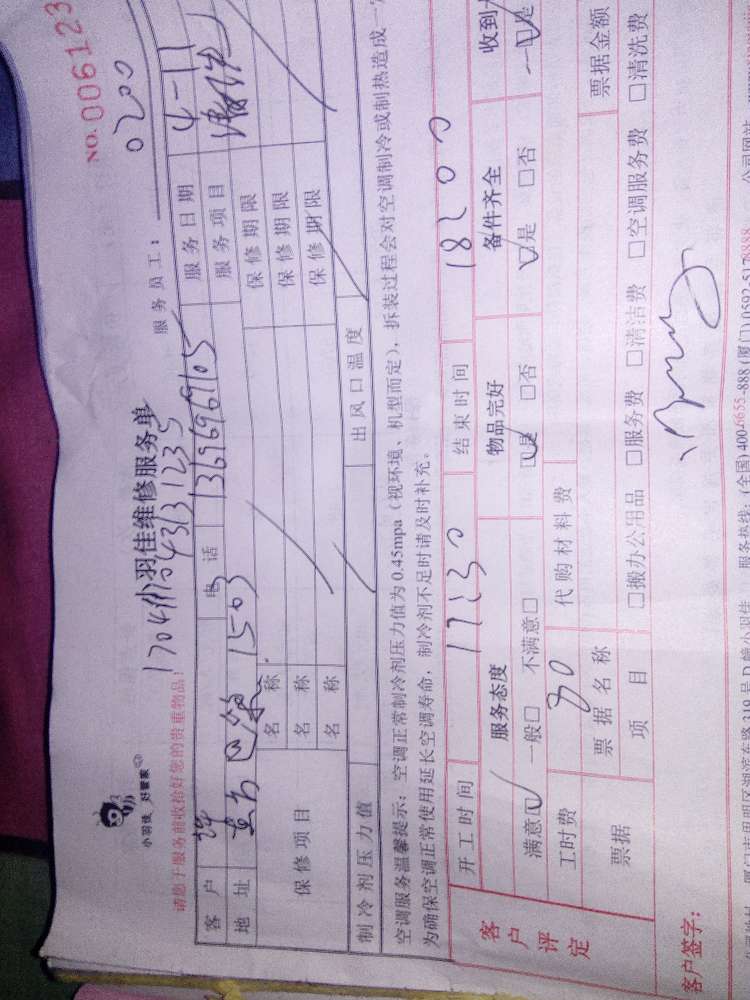 NO.006123
小羽佳 好管家
小羽佳维修服务单
服务员工： 0200
请您于服务前收拾好您的贵重物品！
客户 电话 13696969105 服务日期 4-11
地址 1503 服务项目
保修项目 名称 保修期限
名称 保修期限
名称 保修期限
制冷剂压力值 出风口温度
空调服务温馨提示：空调正常制冷剂压力值为0.45mpa（视环境、机型而定），拆装过程会对空调制冷或制热造成一
为确保空调正常使用延长空调寿命，制冷剂不足时请及时补充。
客户评定
开工时间 17 30 结束时间 18 00
服务态度 物品完好 备件齐全 收到
满意☑ 一般□ 不满意□ ☑是 □否 ☑是 □否 是
工时费 80 代购材料费
票据 票据名称 票据金额
项目 □搬办公用品 □服务费 □清洁费 □空调服务费 □清洗费
客户签字：
服务热线：(全国)400-6655-888(厦门)0592-5178888